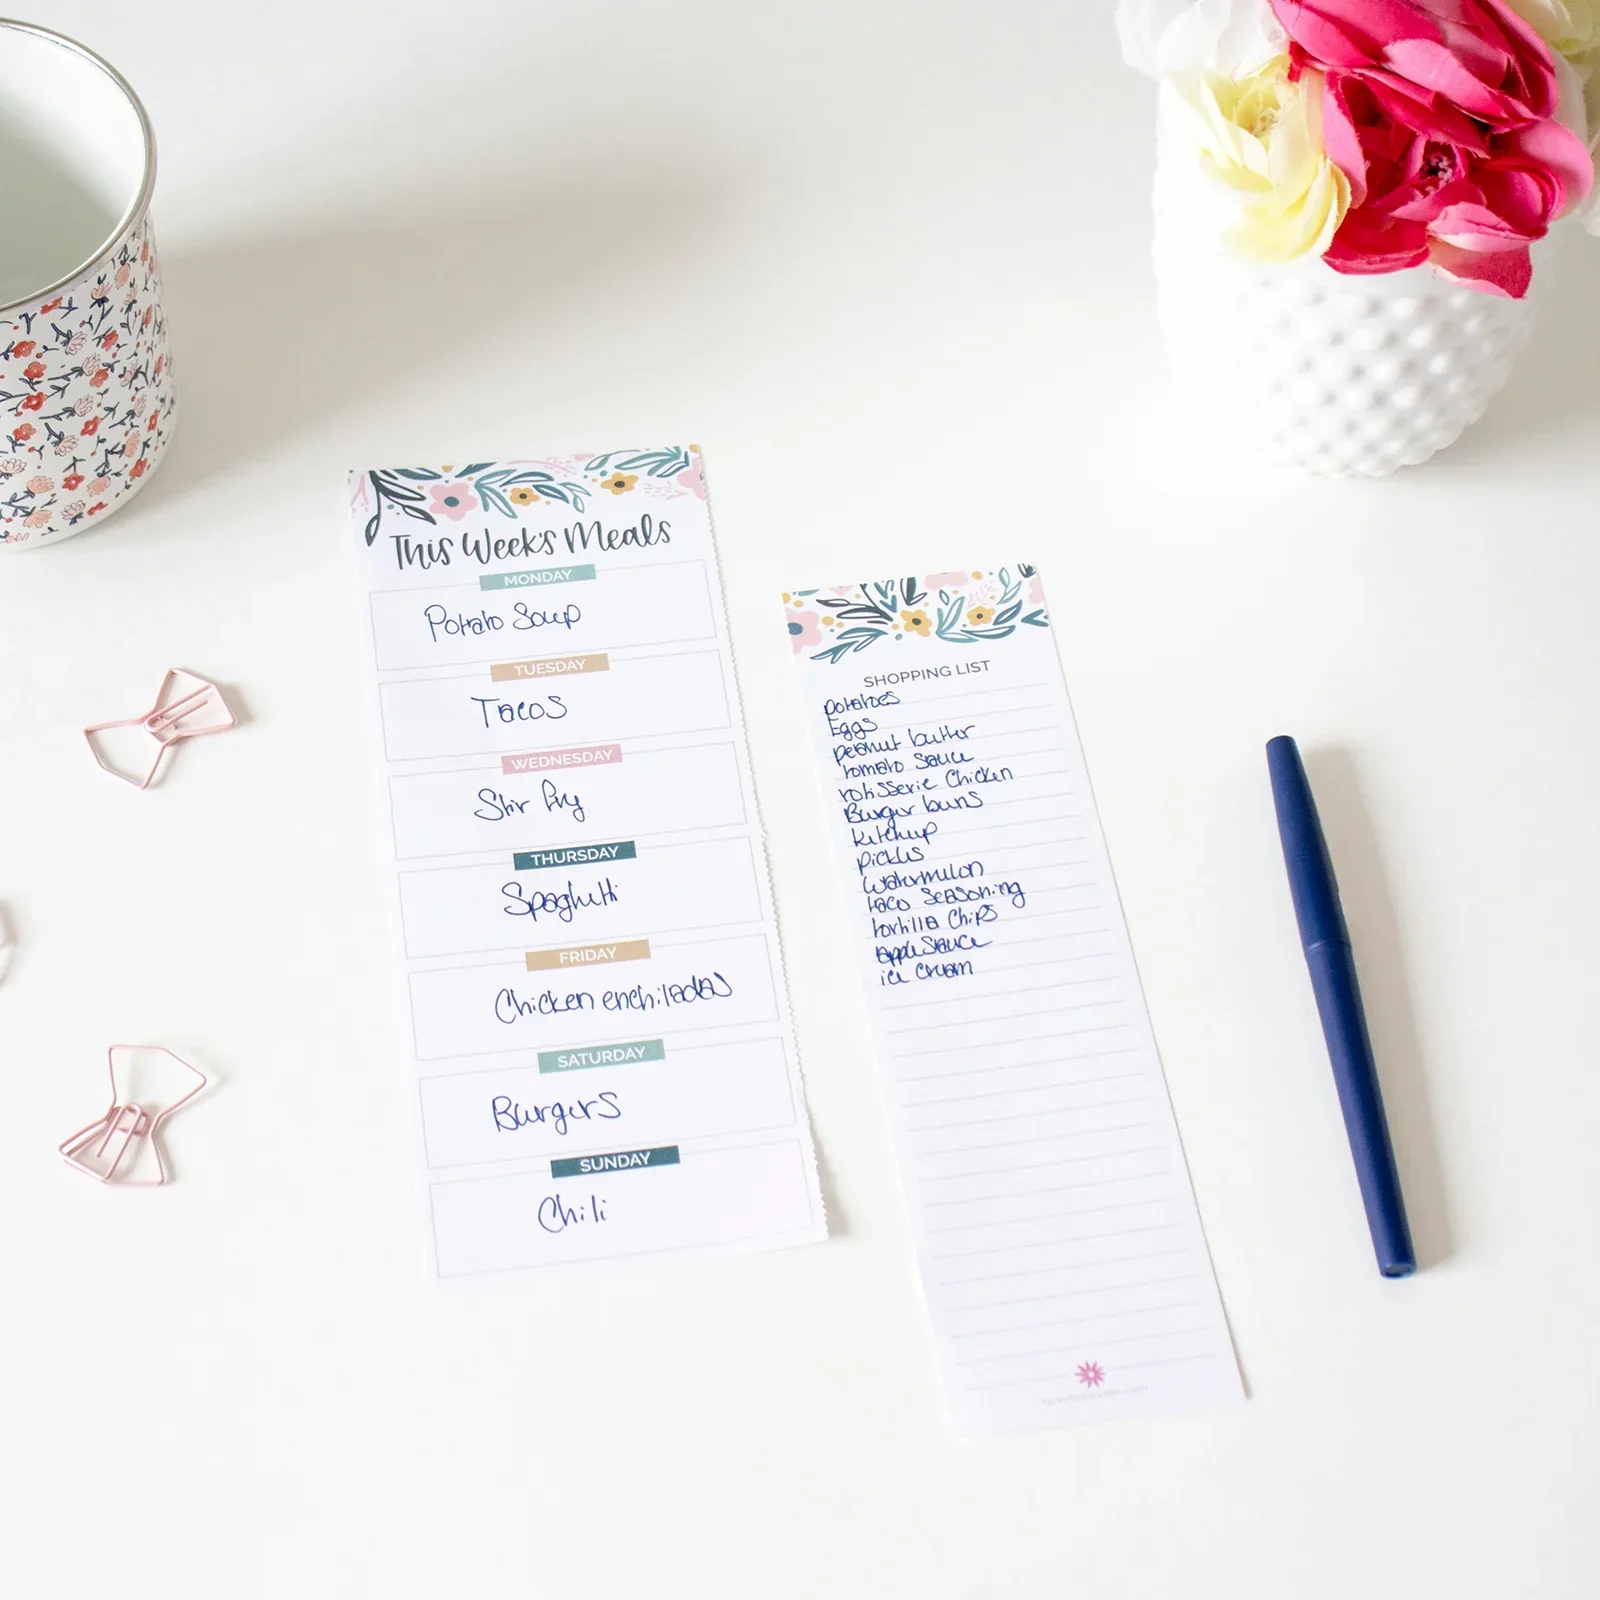 This Week's Meals
MONDAY
Potato Soup
TUESDAY
Tacos
WEDNESDAY
Stir Fry
THURSDAY
Spaghetti
FRIDAY
Chicken enchiladas
SATURDAY
Burgers
SUNDAY
Chili
SHOPPING LIST
potatoes
Eggs
peanut butter
tomato sauce
rotisserie Chicken
Burger buns
ketchup
pickles
watermelon
taco seasoning
tortilla chips
applesauce
ice cream